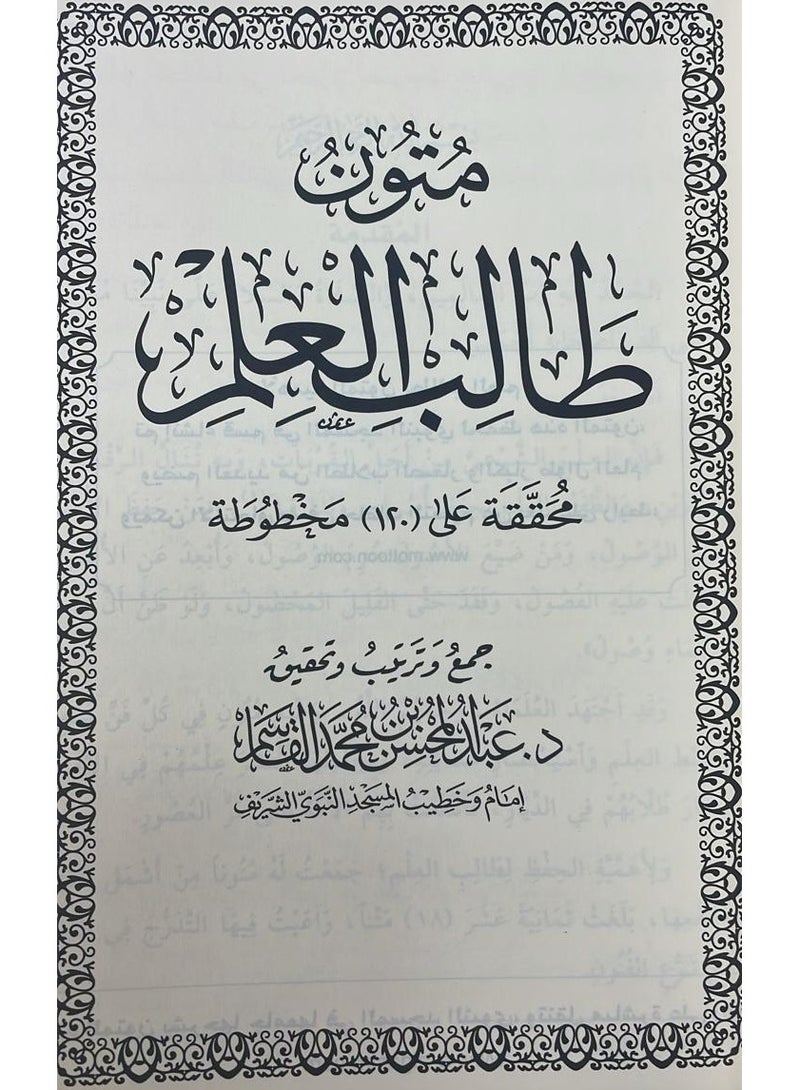 مُتُونُ
طَالِبِ العِلْمِ
مُحَقَّقَة عَلَى (١٢٠) مَخْطُوطَة
جمعُ وَتَرتيبُ وتحقيقُ
د. عَبدُ المُحْسِن بْن مُحَمَّد القَاسِم
إمَامُ وَخَطِيبُ المَسْجِدِ النَّبَوِيِّ الشَّرِيفِ